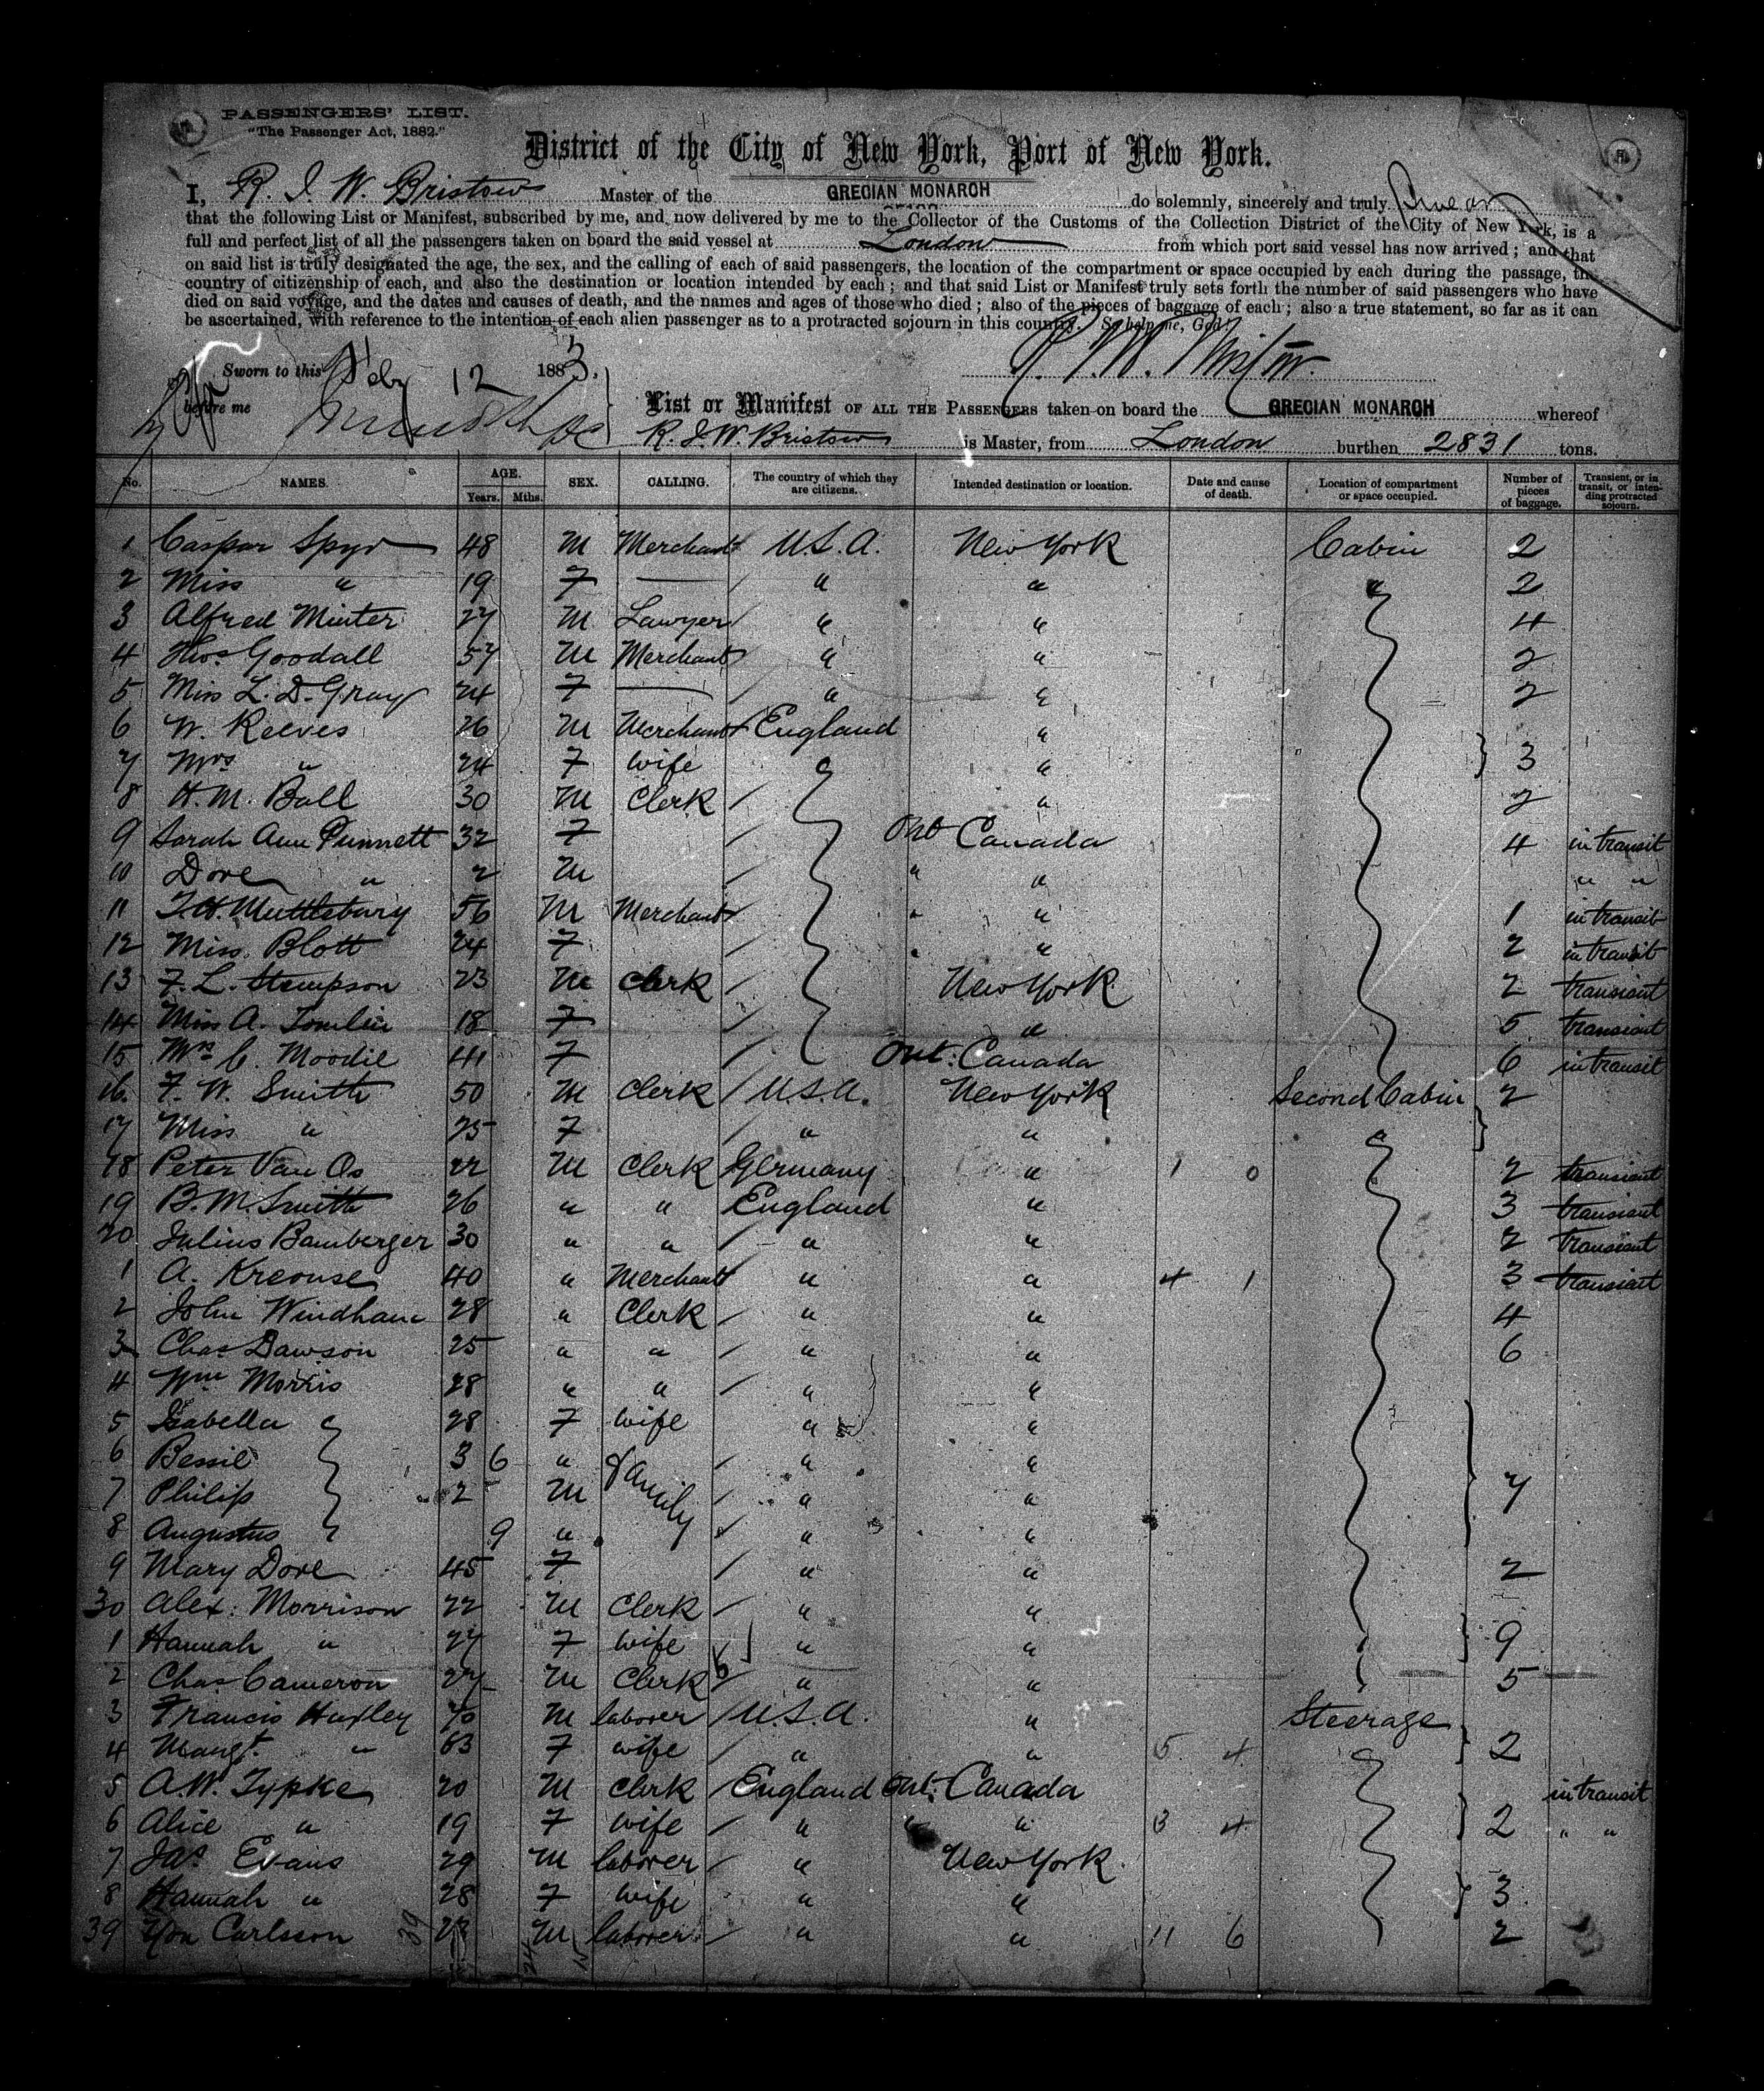 PASSENGERS' LIST.
"The Passenger Act, 1882."
District of the City of New York, Port of New York.
I, R. J. W. Bristow Master of the GRECIAN MONARCH do solemnly, sincerely and truly Swear
that the following List or Manifest, subscribed by me, and now delivered by me to the Collector of the Customs of the Collection District of the City of New York, is a
full and perfect list of all the passengers taken on board the said vessel at London from which port said vessel has now arrived; and that
on said list is truly designated the age, the sex, and the calling of each of said passengers, the location of the compartment or space occupied by each during the passage, the
country of citizenship of each, and also the destination or location intended by each; and that said List or Manifest truly sets forth the number of said passengers who have
died on said voyage, and the dates and causes of death, and the names and ages of those who died; also of the pieces of baggage of each; also a true statement, so far as it can
be ascertained, with reference to the intention of each alien passenger as to a protracted sojourn in this country. So help me, God.
Sworn to this Feby 12 1883.
before me
List or Manifest OF ALL THE PASSENGERS taken on board the GRECIAN MONARCH whereof
R. J. W. Bristow is Master, from London burthen 2831 tons.
No. NAMES. AGE. Years. Mths. SEX. CALLING. The country of which they are citizens. Intended destination or location. Date and cause of death. Location of compartment or space occupied. Number of pieces of baggage. Transient, or in transit, or intending protracted sojourn.
1 Caspar Spyr 48 M Merchant U.S.A. New York Cabin 2
2 Miss " 19 F " " " 2
3 Alfred Minter 27 M Lawyer " " 4
4 Thos Goodall 57 M Merchant " " 2
5 Miss L. D. Gray 24 F " " 2
6 W. Reeves 26 M Merchant England "
7 Mrs " 24 F wife " 3
8 H. M. Ball 30 M Clerk " 2
9 Sarah Ann Punnett 32 F Ont Canada 4 in transit
10 Dove " 2 M " " " "
11 T. H. Muttlebury 56 M Merchant " " 1 in transit
12 Miss Blott 24 F " " 2 in transit
13 F. L. Stempson 23 M Clerk New York 2 transient
14 Miss A. Tomlin 18 F " 5 transient
15 Mrs C. Moodie 41 F Ont. Canada 6 in transit
16. F. W. Smith 50 M Clerk U.S.A. New York Second Cabin 2
17 Miss " 25 F " " "
18 Peter Van Os 22 M Clerk Germany " 1 0 2 transient
19 B. M. Smith 26 " " England " 3 transient
20 Julius Bamberger 30 " " " " 2 transient
1 A. Kreouse 40 " Merchant " " 4 1 3 transient
2 John Windham 28 " Clerk " " 4
3 Chas Dawson 25 " " " " 6
4 Wm Morris 28 " " " "
5 Isabella " 28 F wife " "
6 Bessie 3 6 " family " "
7 Philip 2 M " " 7
8 Augustus 9 " " "
9 Mary Dove 45 F " " 2
30 Alex. Morrison 22 M Clerk " "
1 Hannah " 27 F wife " " 9
2 Chas Cameron 27 M Clerk " " 5
3 Francis Huxley 70 M laborer U.S.A. " Steerage
4 Margt. " 63 F wife " " 5 4 2
5 A. W. Typke 20 M Clerk England Ont. Canada in transit
6 Alice " 19 F wife " " " 3 4 2 " "
7 Jas Evans 29 M laborer " New York
8 Hannah " 28 F wife " " 3
39 Carlsson M laborer " " 11 6 2